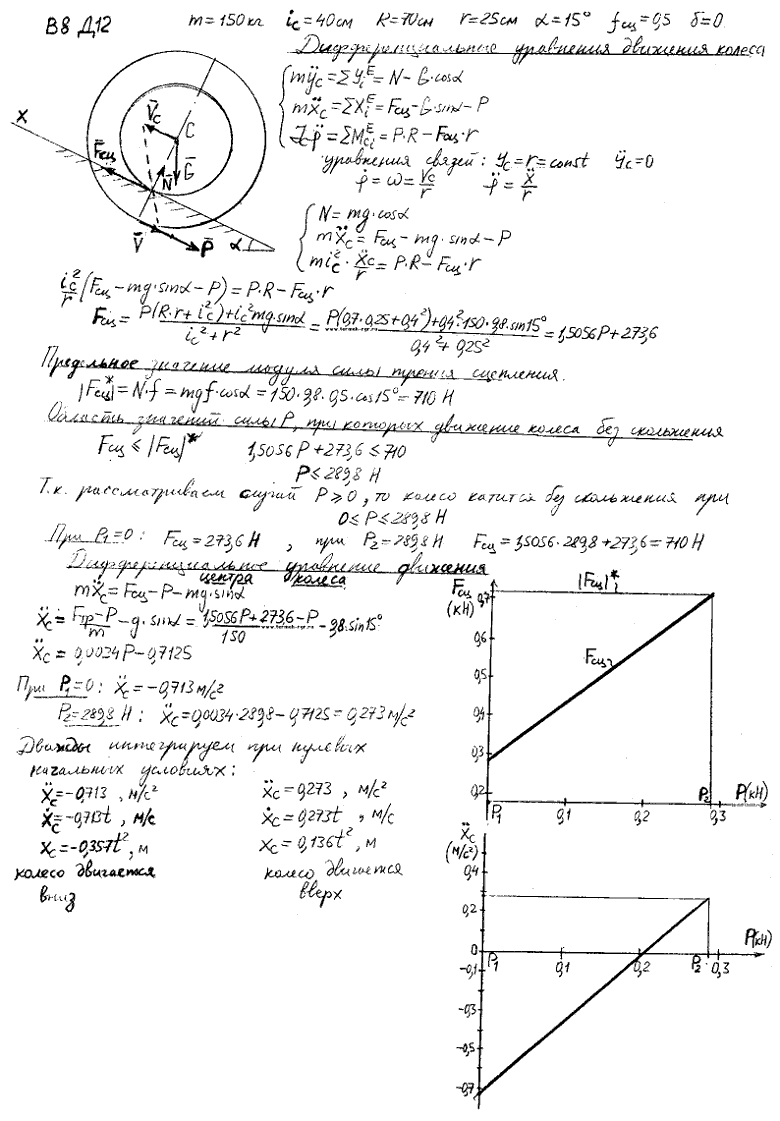 В8 Д12
m = 150 кг i_c = 40 см R = 70 см r = 25 см α = 15° f_сц = 0,5 δ = 0
Дифференциальные уравнения движения колеса
mÿ_c = Σy_i^E = N − G·cosα
mẍ_c = Σx_i^E = F_сц − G·sinα − P
J_c φ̈ = ΣM_ci^E = P·R − F_сц·r
уравнения связей: y_c = r = const ÿ_c = 0
φ̇ = ω = V_c/r φ̈ = ẍ/r
X
V̄_c
C
F̄_сц
N̄
Ḡ
V̄
P̄
α
N = mg·cosα
mẍ_c = F_сц − mg·sinα − P
m i_c²·ẍ_c/r = P·R − F_сц·r
i_c²/r (F_сц − mg·sinα − P) = P·R − F_сц·r
F_сц = (P(R·r + i_c²) + i_c² mg sinα)/(i_c² + r²) = (P(0,7·0,25 + 0,4²) + 0,4²·150·9,8·sin15°)/(0,4² + 0,25²) = 1,5056P + 273,6
Предельное значение модуля силы трения сцепления.
|F_сц|* = N·f = mgf·cosα = 150·9,8·0,5·cos15° = 710 Н
Область значений силы P, при которых движение колеса без скольжения
F_сц ≤ |F_сц|* 1,5056P + 273,6 ≤ 710
P ≤ 289,8 Н
Т.к. рассматриваем случай P ⩾ 0, то колесо катится без скольжения при
0 ≤ P ≤ 289,8 Н
При P₁=0: F_сц = 273,6 Н , при P₂ = 289,8 Н F_сц = 1,5056·289,8 + 273,6 = 710 Н
Дифференциальное уравнение движения
центра колеса
mẍ_c = F_сц − P − mg·sinα
ẍ_c = (F_тр − P)/m − g·sinα = (1,5056P + 273,6 − P)/150 − 9,8·sin15°
ẍ_c = 0,0034P − 0,7125
При P₁=0: ẍ_c = −0,713 м/с²
P₂=289,8 Н: ẍ_c = 0,0034·289,8 − 0,7125 = 0,273 м/с²
Дважды интегрируем при нулевых
начальных условиях:
ẍ_c = −0,713 , м/с² ẍ_c = 0,273 , м/с²
ẋ_c = −0,713t , м/с ẋ_c = 0,273t , м/с
x_c = −0,357t² , м x_c = 0,136t² , м
колесо двигается колесо двигается
вниз вверх
F_сц
(кН)
|F_сц|*
F_сц
0,7
0,6
0,5
0,4
0,3
0,2
P₁ 0,1 0,2 P₂ 0,3 P(кН)
ẍ_c
(м/с²)
0,4
0,2
0
−0,1
−0,3
−0,5
−0,7
P₁ 0,1 0,2 P₂ 0,3 P(кН)